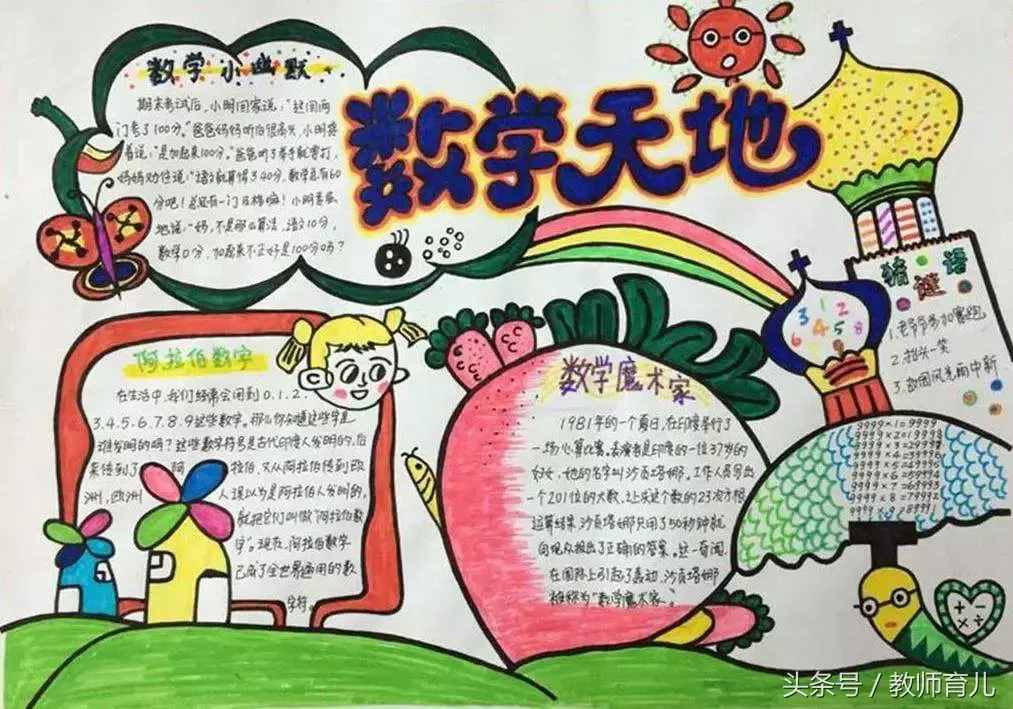 数学天地
数学小幽默
期末考试后,小明回家说:"这回两
门考了100分。"爸爸妈妈听后很高兴,小明接
着说:"是加起来100分。"爸爸听了举手就要打,
妈妈劝住说:"语文就算得了40分,数学总有60
分吧!总还有一门及格嘛!小明委屈
地说:"妈,不是那么算法,语文10分,
数学0分,加起来不正好是100分吗?
阿拉伯数字
在生活中,我们经常会用到0.1.2.
3.4.5.6.7.8.9这些数字。那么你知道这些字是
谁发明的吗?这些数字符号是古代印度人发明的,后
来传到了阿拉伯,又从阿拉伯传到欧
洲,欧洲人误以为是阿拉伯人发明的,
就把它们叫做"阿拉伯数
字"。现在,阿拉伯数字
已成了全世界通用的数
字符。
数学魔术家
1981年的一个夏日,在印度举行了
一场心算比赛,表演者是印度的一位37岁的
妇女,她的名字叫沙贡塔娜,工作人员写出
一个201位的大数,让求这个数的23次方根
运算结果沙贡塔娜只用了50秒钟就
向观众报出了正确的答案。这一奇闻
在国际上引起了轰动,沙贡塔娜
被称为"数学魔术家"。
3 1 2
6 4 5 8
猜谜语
1.老爷爷参加赛跑
2.抬头一笑
3.故国风光雨中新
9999×1=9999
9999×2=19998
9999×4=39996
9999×5=49995
9999×7=69993
9999×8=79992
9999×9=89991
+ - × ÷
头条号 / 教师育儿